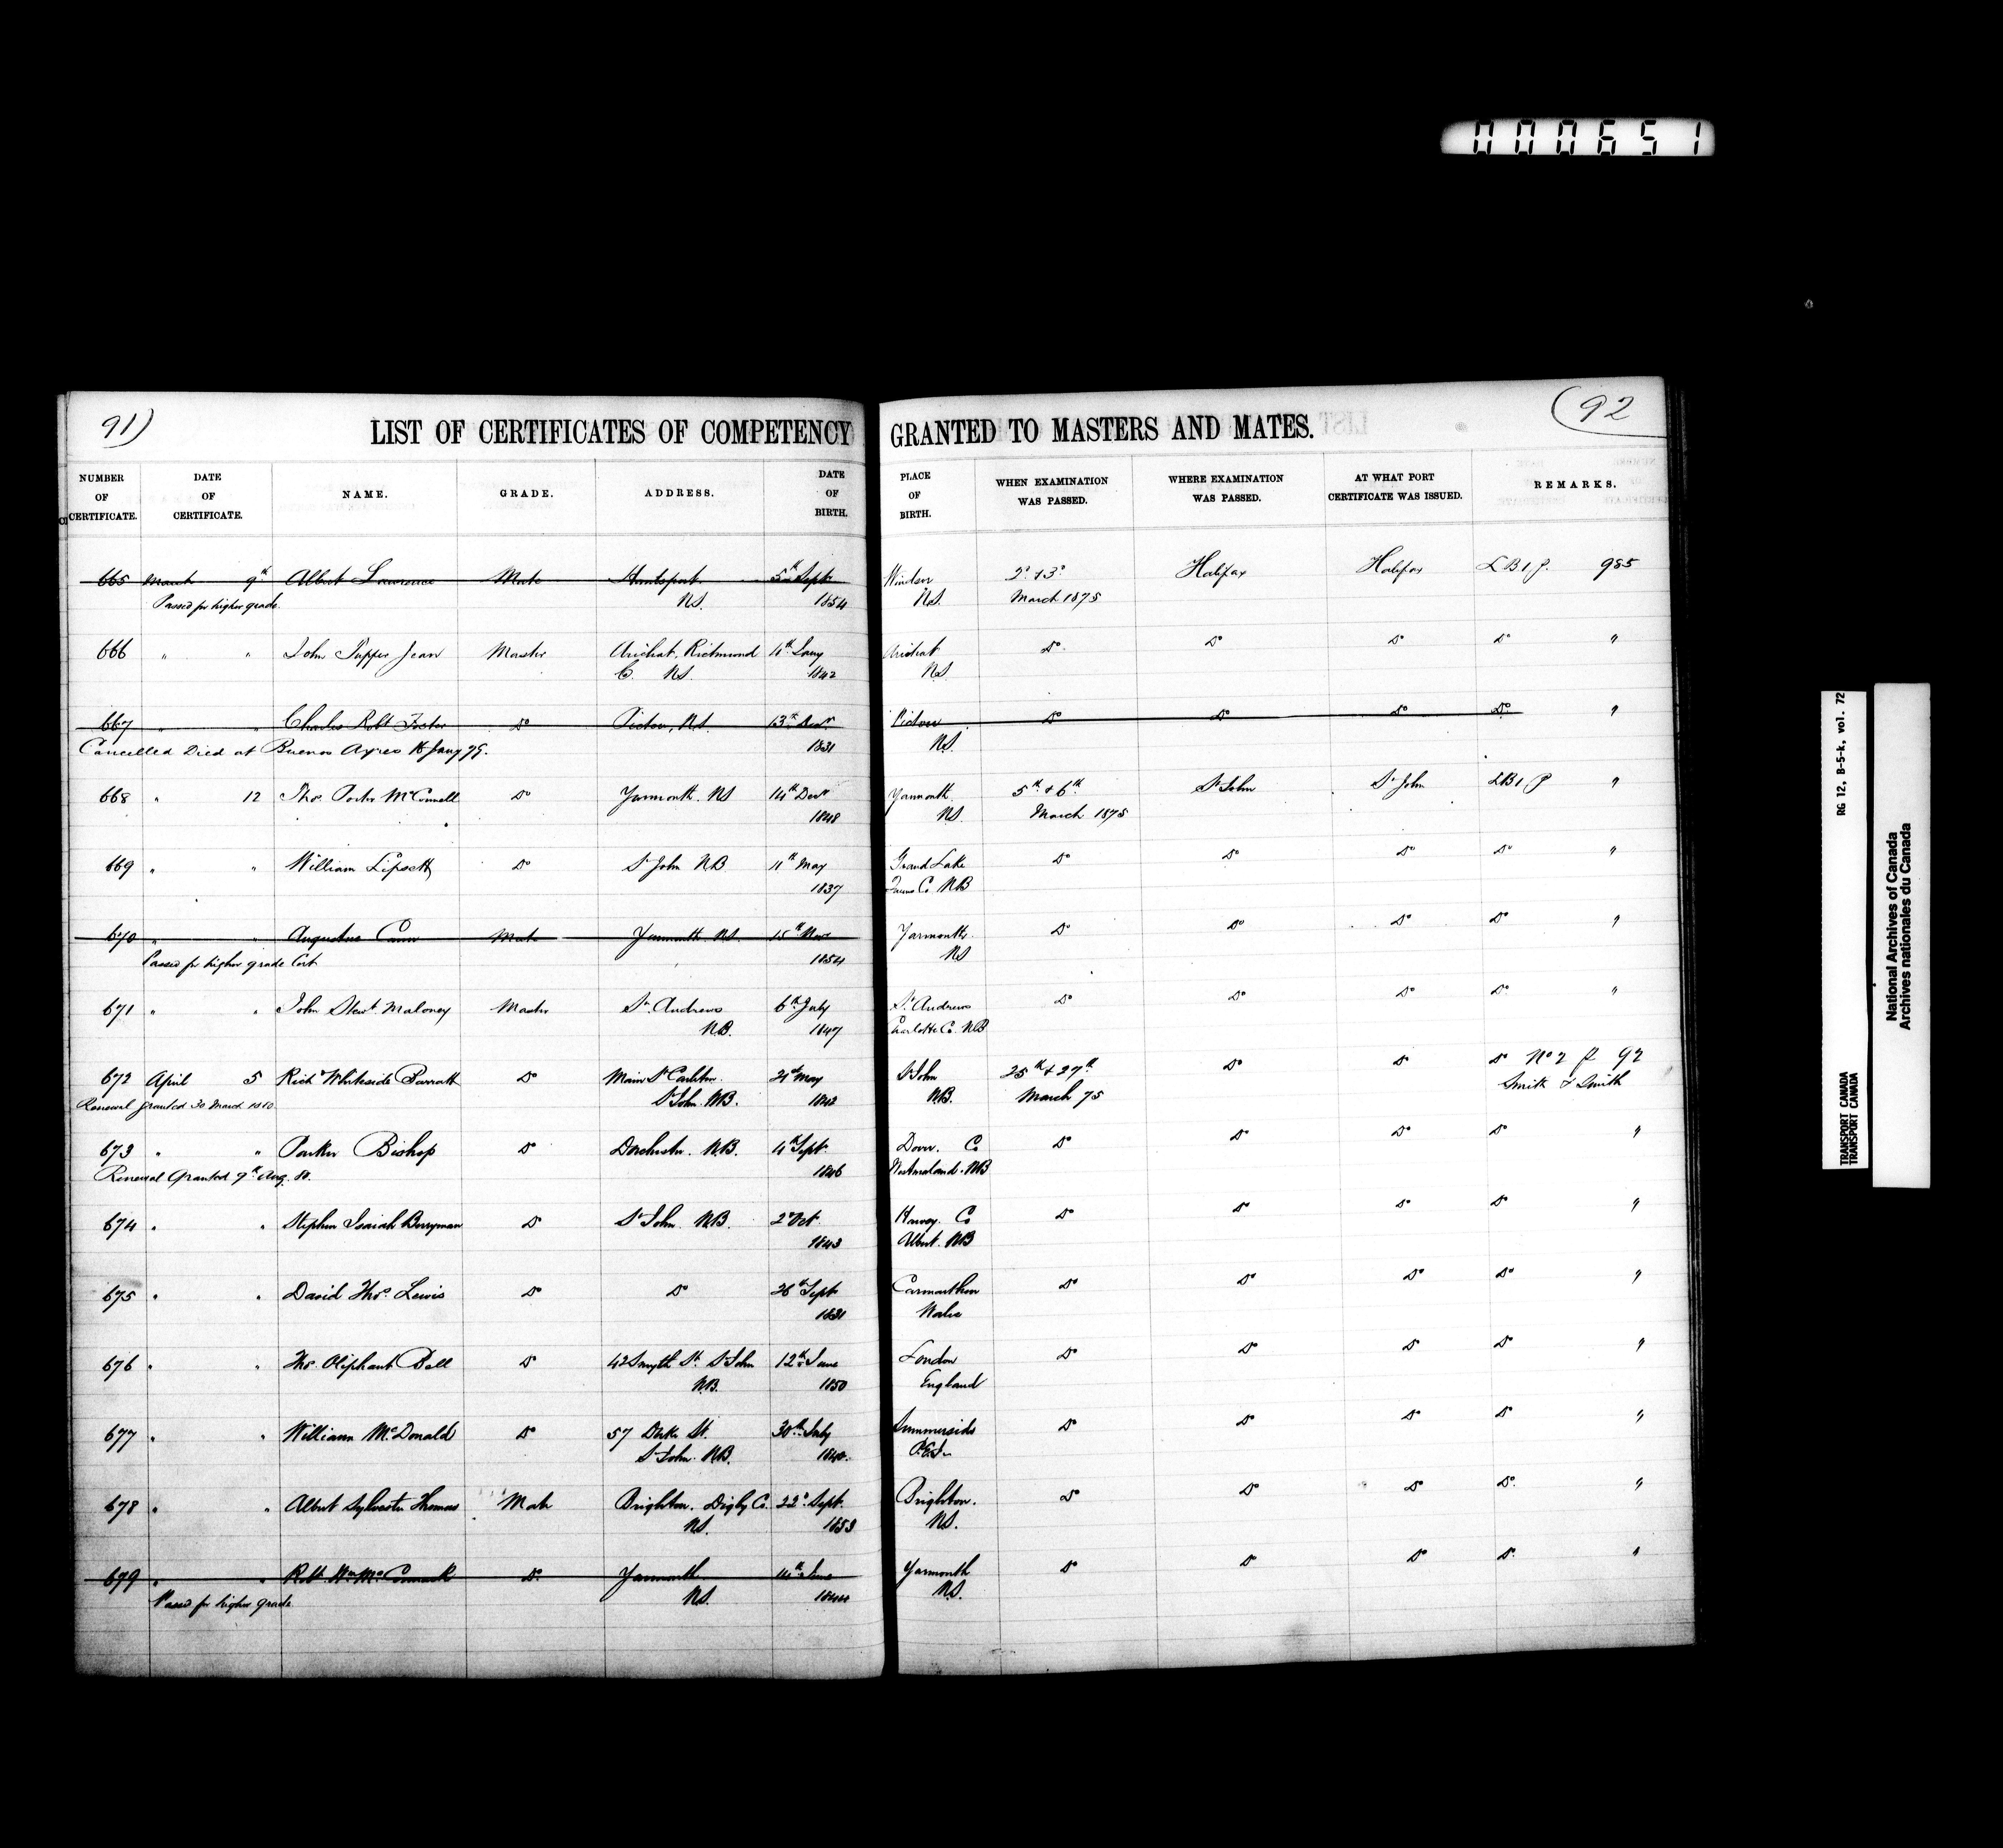 000651
91)
LIST OF CERTIFICATES OF COMPETENCY GRANTED TO MASTERS AND MATES.
(92
NUMBER OF CERTIFICATE. DATE OF CERTIFICATE. NAME. GRADE. ADDRESS. DATE OF BIRTH. PLACE OF BIRTH. WHEN EXAMINATION WAS PASSED. WHERE EXAMINATION WAS PASSED. AT WHAT PORT CERTIFICATE WAS ISSUED. REMARKS.
665 March 9th Albert Lawrence Mate Hantsport 5th Sept Windsor 2d & 3d Halifax Halifax LB 1 P. 985
Passed for higher grade. NS. 1854 NS. March 1875
666 " " John Tupper Jean Master Arichat, Richmond 11th Jany Arichat Do. Do Do Do "
C. NS. 1842 NS
667 " " Charles Robt Foster Do Pictou, NS. 13th Pictou Do Do Do Do "
Cancelled Died at Buenos Ayres 16 Jany 79. 1831 NS.
668 " 12 Thos. Porter McConnell Do Yarmouth. NS 14th Decr Yarmouth 5th & 6th St John St John LB 1 P "
1848 NS. March 1875
669 " " William Lipsett Do St John NB 11th May Grand Lake Do Do Do Do "
1837 Queens Co. NB
670 " " Augustus Cann Mate Yarmouth. NS. 15th Novr Yarmouth Do Do Do Do "
Passed for higher grade Cert 1854 NS
671 " " John Stewt. Maloney Master St. Andrews 6th July St. Andrews Do Do Do Do "
NB. 1847 Charlotte Co. NB
672 April 5 Richd Whiteside Parratt Do Main St Carleton 21st May St John 25th & 27th Do Do Do No 2 P 92
Renewal granted 30 March 1880 St John. NB. 1842 NB. March 75 Smith & Smith
673 " " Parker Bishop Do Dorchester. NB. 4th Sept. Dover. Co Do Do Do Do "
Renewal Granted 9th Aug. 80. 1846 Westmorland. NB
674 " " Stephen Isaiah Berryman Do St John NB. 2d Oct Harvey. Co Do Do Do Do "
1843 Albert. NB
675 " " David Thos. Lewis Do Do 26th Sept Carmarthen Do Do Do Do "
1831 Wales
676 " " Thos. Oliphant Bell Do 42 Smyth St. St John 12th June London Do Do Do Do "
NB. 1850 England
677 " " William McDonald Do 57 Duke St. 30th July Summerside Do Do Do Do "
St John. NB. 1840. P.E.I.
678 " " Albert Sylvester Thomas Mate Brighton. Digby Co. 22d Sept. Brighton. Do Do Do Do. "
NS. 1853 NS.
679 " " Robt. Wm. McCormack Do. Yarmouth 14th June Yarmouth Do Do Do Do. "
Passed for higher grade NS. 1844 NS.
RG 12, B-5-k, vol. 72
TRANSPORT CANADA
TRANSPORT CANADA
National Archives of Canada
Archives nationales du Canada